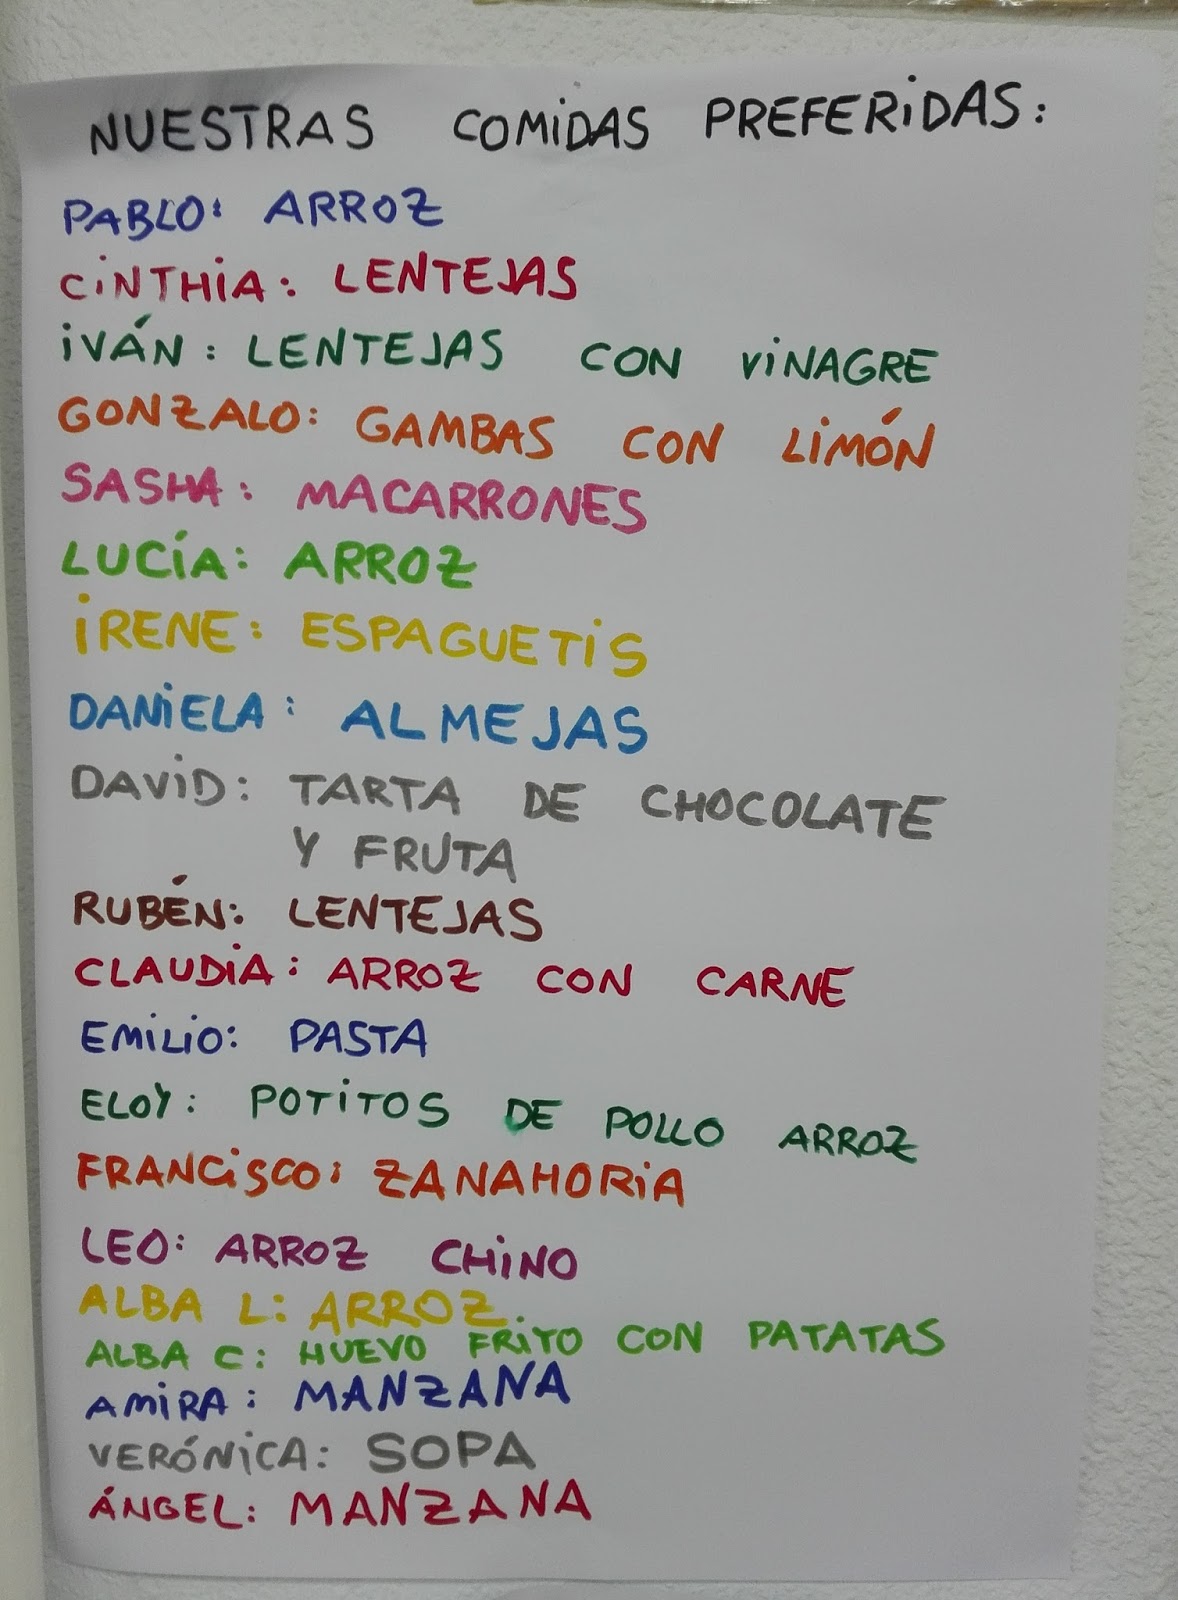 NUESTRAS COMIDAS PREFERIDAS:
PABLO: ARROZ
CINTHIA: LENTEJAS
IVÁN: LENTEJAS CON VINAGRE
GONZALO: GAMBAS CON LIMÓN
SASHA: MACARRONES
LUCÍA: ARROZ
IRENE: ESPAGUETIS
DANIELA: ALMEJAS
DAVID: TARTA DE CHOCOLATE
Y FRUTA
RUBÉN: LENTEJAS
CLAUDIA: ARROZ CON CARNE
EMILIO: PASTA
ELOY: POTITOS DE POLLO ARROZ
FRANCISCO: ZANAHORIA
LEO: ARROZ CHINO
ALBA L: ARROZ.
ALBA C: HUEVO FRITO CON PATATAS
AMIRA: MANZANA
VERÓNICA: SOPA
ÁNGEL: MANZANA